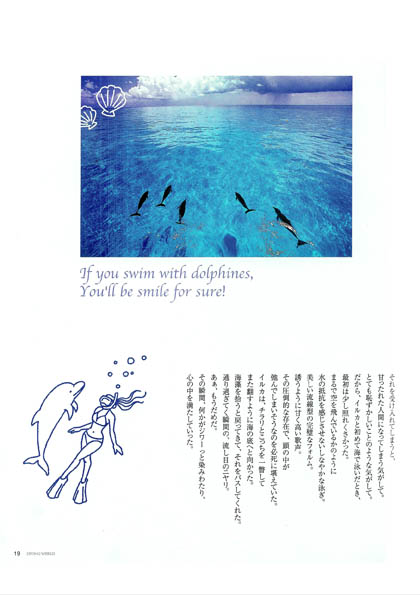 If you swim with dolphines,
You'll be smile for sure!
それを受け入れてしまうと、
甘ったれた人間になってしまう気がして。
とても恥ずかしいことのような気がして。
だから、イルカと初めて海で泳いだとき、
最初は少し照れくさかった。
まるで空を飛んでいるかのように
水の抵抗を感じさせないしなやかな泳ぎ。
美しい流線型の完璧なフォルム。
誘うように甘く高い歌声。
その圧倒的な存在で、頭の中が
弛んでしまいそうなのを必死に堪えていた。
イルカは、チラリとこっちを一瞥して
また翻すように海の底へと向かった。
海藻を拾うと戻ってきて、それをパスしてくれた。
通り過ぎてく瞬間の、流し目のニヤリ。
あぁ、もうだめだ。
その瞬間、何かがジワーっと染みわたり、
心の中を満たしていった。
19